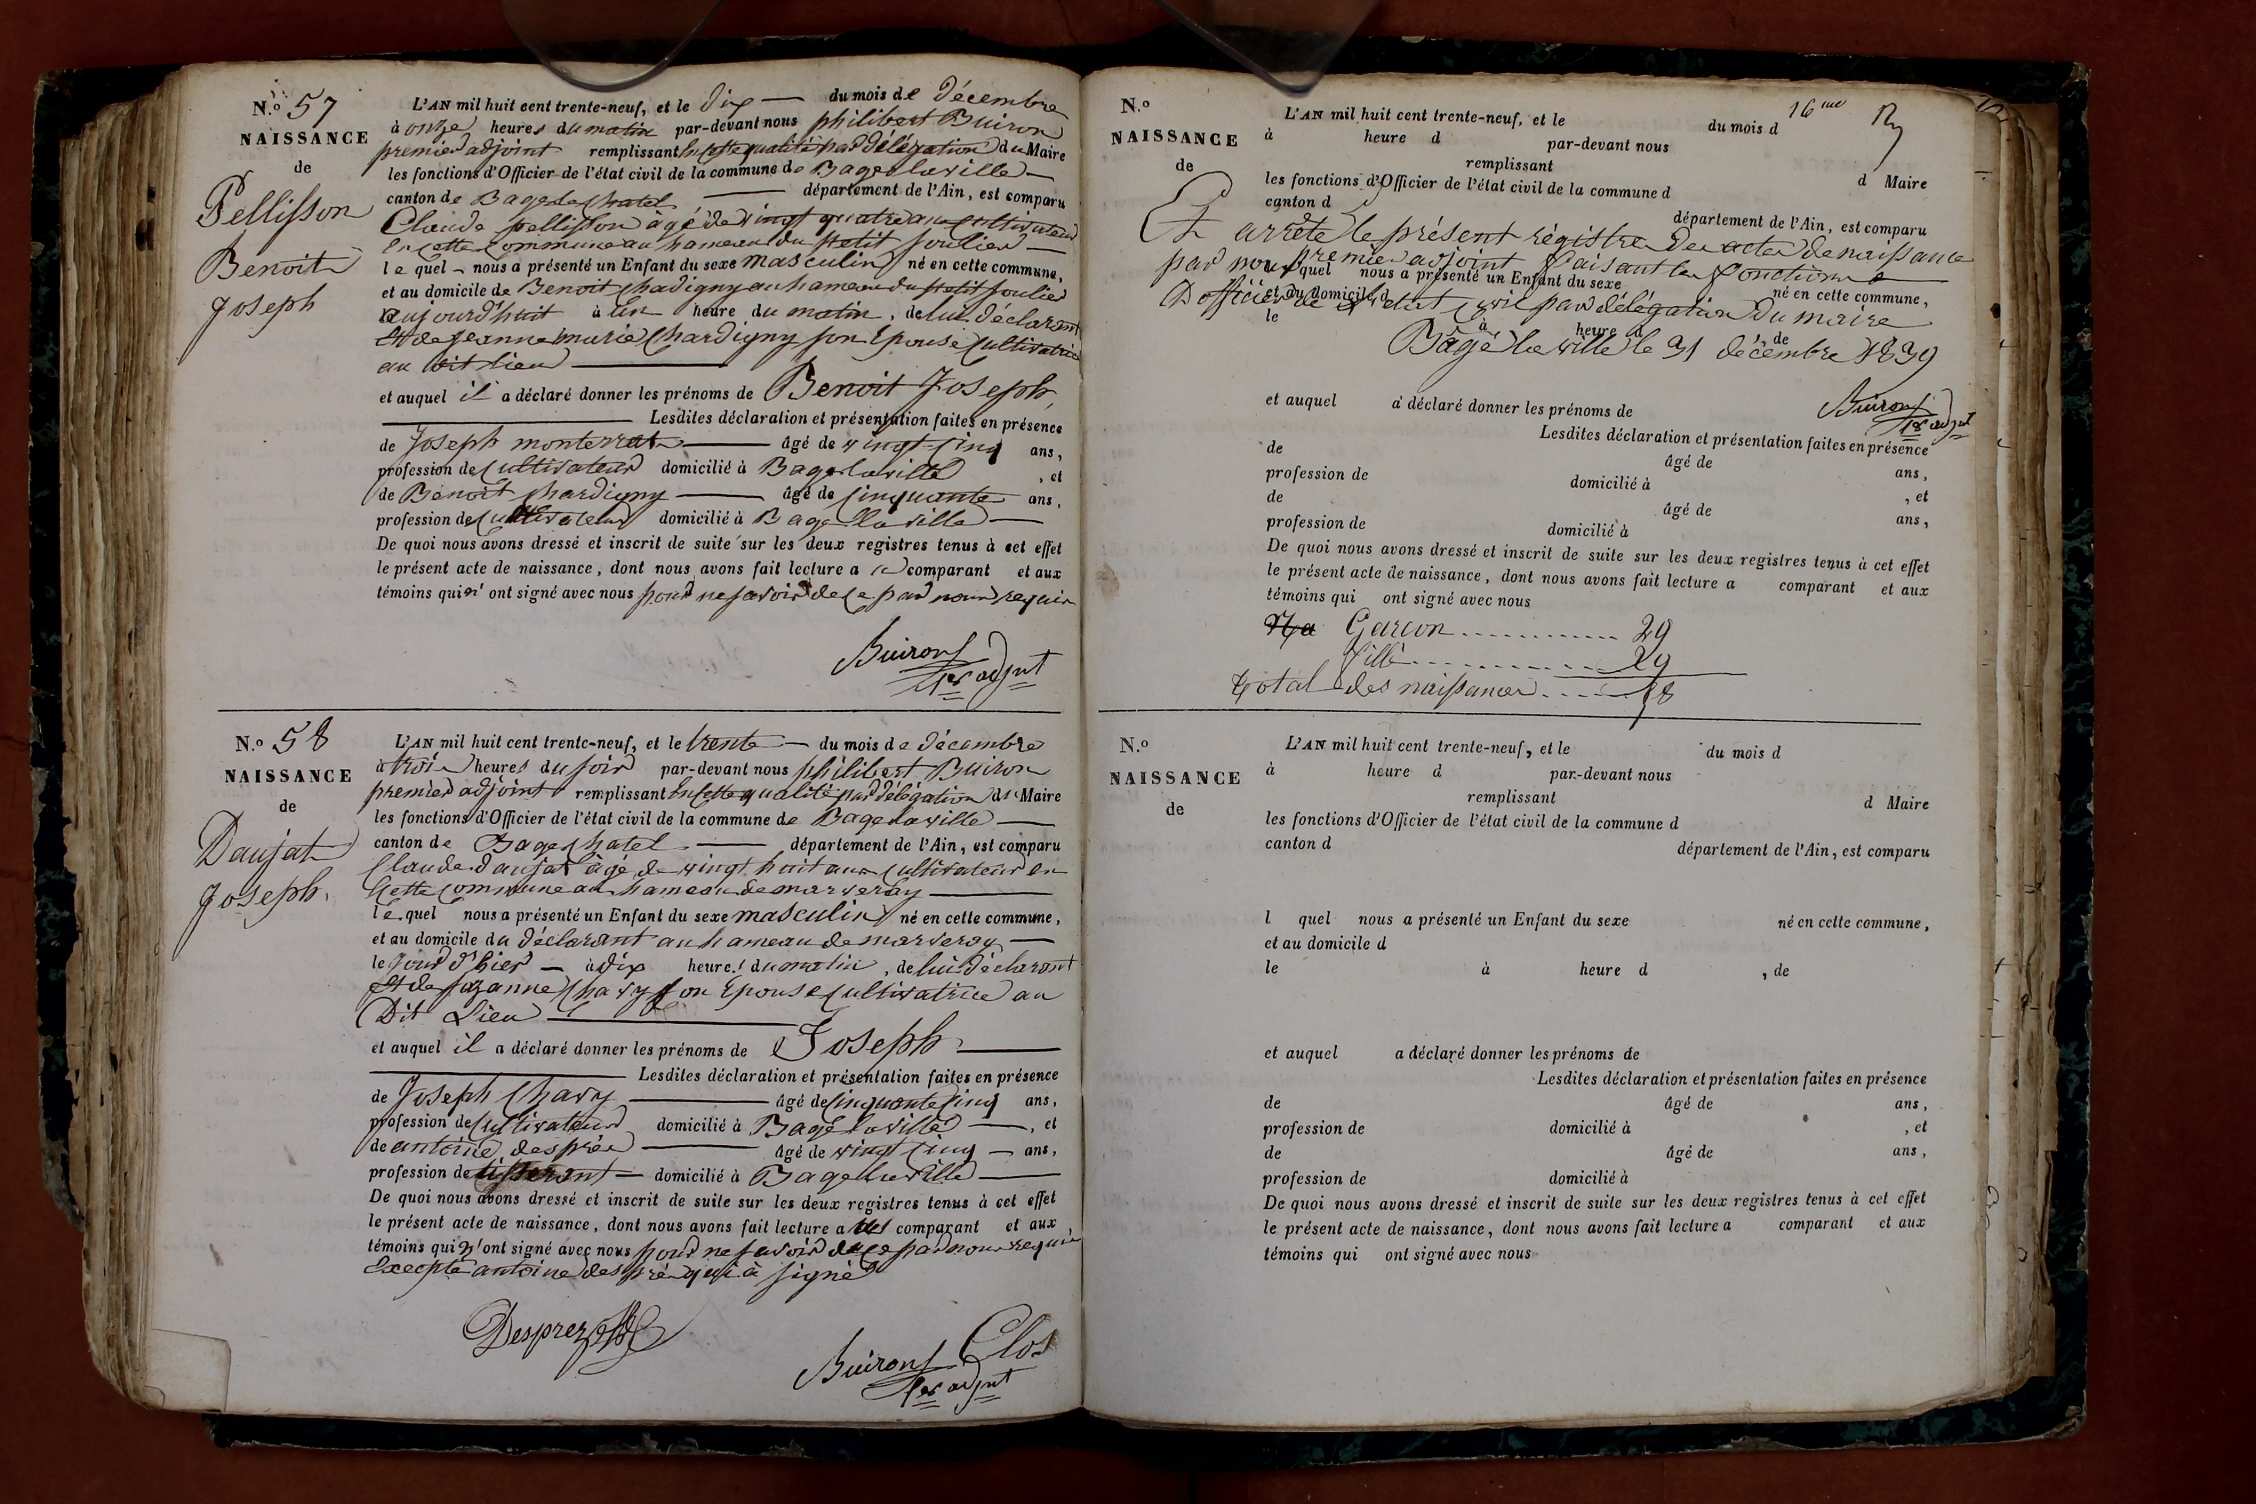 N.o 57
NAISSANCE
de
Pellisson
Benoit
Joseph
L'AN mil huit cent trente-neuf, et le dix du mois de décembre
à onze heures du matin par-devant nous philibert Buiron
premier adjoint remplissant en cette qualité par délégation du Maire
les fonctions d'Officier de l'état civil de la commune de Bagé la ville
canton de Bagé le chatel département de l'Ain, est comparu
Claude pellisson âgé de vingt quatre ans cultivateur
en cette commune au hameau du petit soulier
le quel nous a présenté un Enfant du sexe masculin né en cette commune,
et au domicile de Benoit chardigny au hameau du petit soulier
aujourd'huit à un heure du matin, de lui déclarant
et de jeanne marie chardigny son épouse cultivatrice
au dit lieu
et auquel il a déclaré donner les prénoms de Benoit Joseph,
Lesdites déclaration et présentation faites en présence
de Joseph monterrat âgé de vingt cinq ans,
profession de cultivateur domicilié à Bagé la ville, et
de Benoit chardigny âgé de cinquante ans,
profession de cultivateur domicilié à Bagé la ville
De quoi nous avons dressé et inscrit de suite sur les deux registres tenus à cet effet
le présent acte de naissance, dont nous avons fait lecture a u comparant et aux
témoins qui n' ont signé avec nous pour ne savoir de ce par nous requis
Buiron
1er adjnt
N.o 58
NAISSANCE
de
Daujat
Joseph.
L'AN mil huit cent trente-neuf, et le trente du mois de décembre
à trois heures du soir par-devant nous philibert Buiron
premier adjoint remplissant en cette qualité par délégation du Maire
les fonctions d'Officier de l'état civil de la commune de Bagé la ville
canton de Bagé chatel département de l'Ain, est comparu
Claude daujat âgé de vingt huit ans cultivateur en
cette commune au hameau de marveray
le quel nous a présenté un Enfant du sexe masculin né en cette commune,
et au domicile du déclarant au hameau de marveray
le jour d'hier à dix heures du matin, de lui déclarant
et de suzanne chavy son épouse cultivatrice au
Dit Lieu
et auquel il a déclaré donner les prénoms de Joseph
Lesdites déclaration et présentation faites en présence
de Joseph chavy âgé de cinquante cinq ans,
profession de cultivateur domicilié à Bagé la ville, et
de antoine desprée âgé de vingt cinq ans,
profession de tisserant domicilié à Bagé la ville
De quoi nous avons dressé et inscrit de suite sur les deux registres tenus à cet effet
le présent acte de naissance, dont nous avons fait lecture a comparant et aux
témoins qui n'ont signé avec nous pour ne savoir de ce par nous requis
Excepté antoine despré qui à signé
Desprez
Buiron Clos
1er adjnt
16me
N.o
NAISSANCE
de
L'AN mil huit cent trente-neuf, et le du mois d
à heure d par-devant nous
remplissant d Maire
les fonctions d'Officier de l'état civil de la commune d
canton d département de l'Ain, est comparu
Et arrêté le présent régistre des actes de naissance
par nous premier adjoint faisant les fonctions
l quel nous a présenté un Enfant du sexe né en cette commune,
D'officier de l'état civil par délégation du maire
et au domicile d
le à heure d, de
Bagé la ville le 31 décembre 1839
Buiron
1er adjnt
et auquel a déclaré donner les prénoms de
Lesdites déclaration et présentation faites en présence
de âgé de ans,
profession de domicilié à, et
de âgé de ans,
profession de domicilié à
De quoi nous avons dressé et inscrit de suite sur les deux registres tenus à cet effet
le présent acte de naissance, dont nous avons fait lecture a comparant et aux
témoins qui ont signé avec nous
Garcon ............ 29
fille ............ 29
total des naissances ...... 58
N.o
NAISSANCE
de
L'AN mil huit cent trente-neuf, et le du mois d
à heure d par-devant nous
remplissant d Maire
les fonctions d'Officier de l'état civil de la commune d
canton d département de l'Ain, est comparu
l quel nous a présenté un Enfant du sexe né en cette commune,
et au domicile d
le à heure d, de
et auquel a déclaré donner les prénoms de
Lesdites déclaration et présentation faites en présence
de âgé de ans,
profession de domicilié à, et
de âgé de ans,
profession de domicilié à
De quoi nous avons dressé et inscrit de suite sur les deux registres tenus à cet effet
le présent acte de naissance, dont nous avons fait lecture a comparant et aux
témoins qui ont signé avec nous